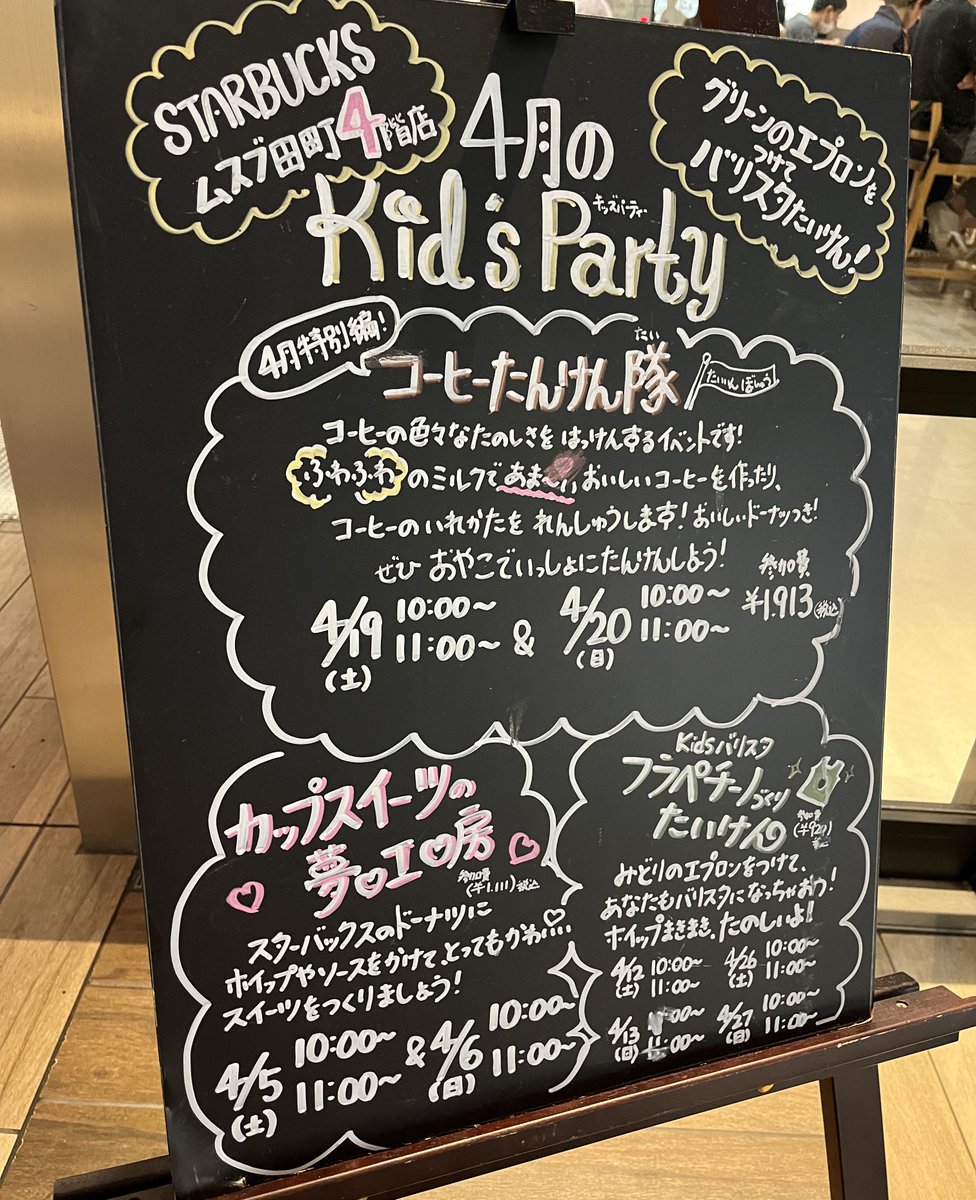 STARBUCKS
ムスブ田町4階店
4月の
Kid's Party
キッズパーティ
グリーンのエプロンを
つけて
バリスタたいけん!
4月特別編!
コーヒーたんけん隊
たい
たいいんぼしゅう
コーヒーの色々なたのしさを はっけんするイベントです!
ふわふわのミルクであま〜い、おいしいコーヒーを作ったり、
コーヒーのいれかたを れんしゅうします! おいしいドーナッつき!
ぜひ おやこでいっしょにたんけんしよう!
参加費
¥1.913(税込)
4/19
(土)
10:00〜
11:00〜
&
4/20
(日)
10:00〜
11:00〜
カップスイーツの
夢の工房
参加費
(¥1.111)税込
スターバックスのドーナツに
ホイップやソースをかけて、とってもかわいい
スイーツをつくりましょう!
4/5
(土)
10:00〜
11:00〜
&
4/6
(日)
10:00〜
11:00〜
Kidsバリスタ
フラペチーノづくり
たいけん
参加費
みどりのエプロンをつけて、
あなたもバリスタになっちゃおう!
ホイップまきまき、たのしいよ!
4/12
(土)
10:00〜
11:00〜
4/26
(土)
10:00〜
11:00〜
4/13
(日)
10:00〜
11:00〜
4/27
(日)
10:00〜
11:00〜